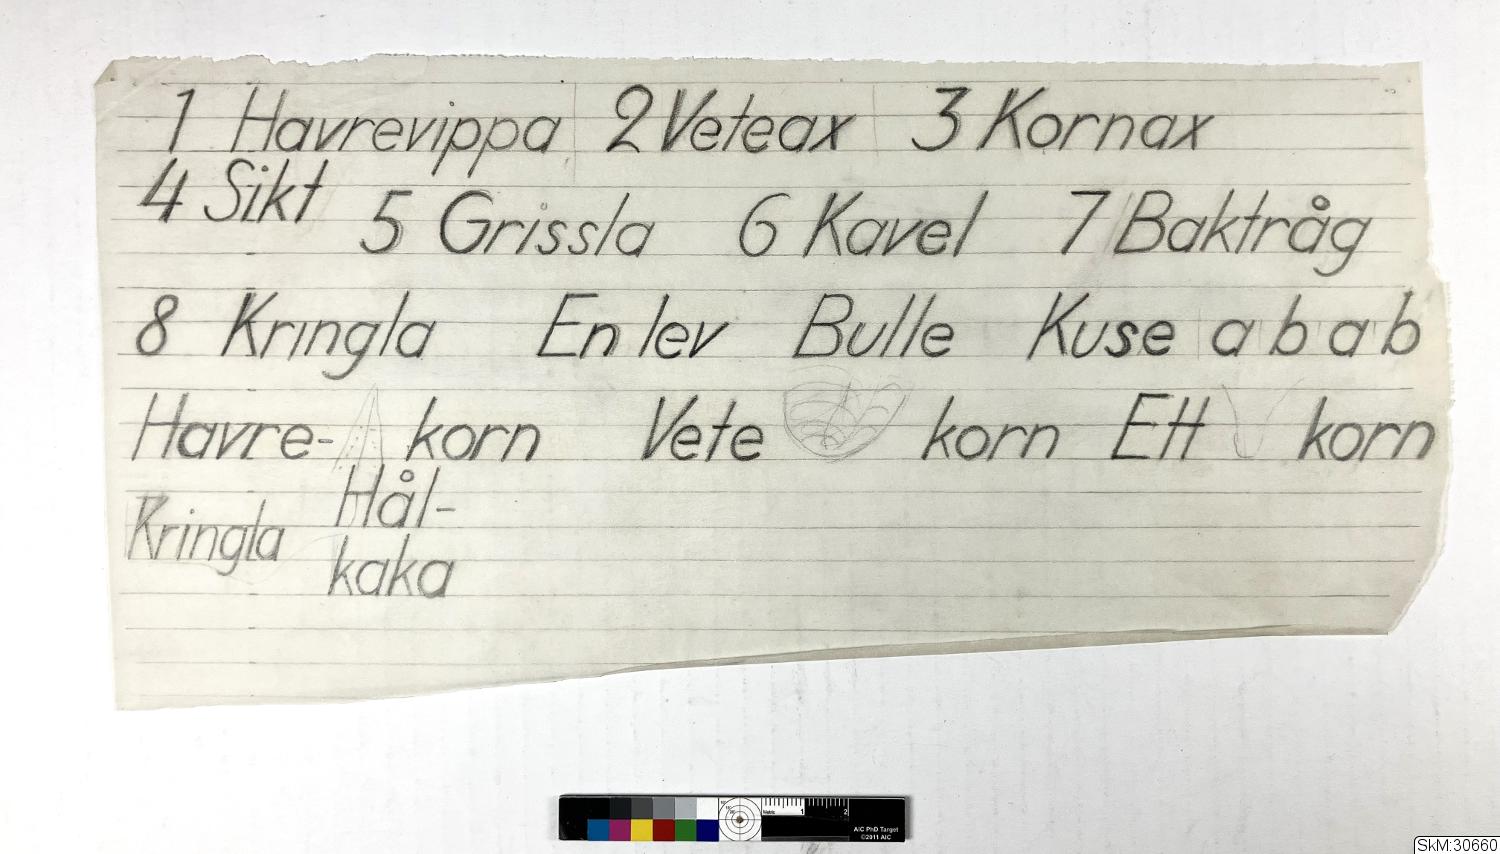 1 Havrevippa 2 Veteax 3 Kornax
4 Sikt 5 Grissla 6 Kavel 7 Baktråg
8 Kringla En lev Bulle Kuse a b a b
Havre- korn Vete korn Ett korn
Kringla Hål-
kaka
AIC PhD Target
©2011 AIC
SkM:30660